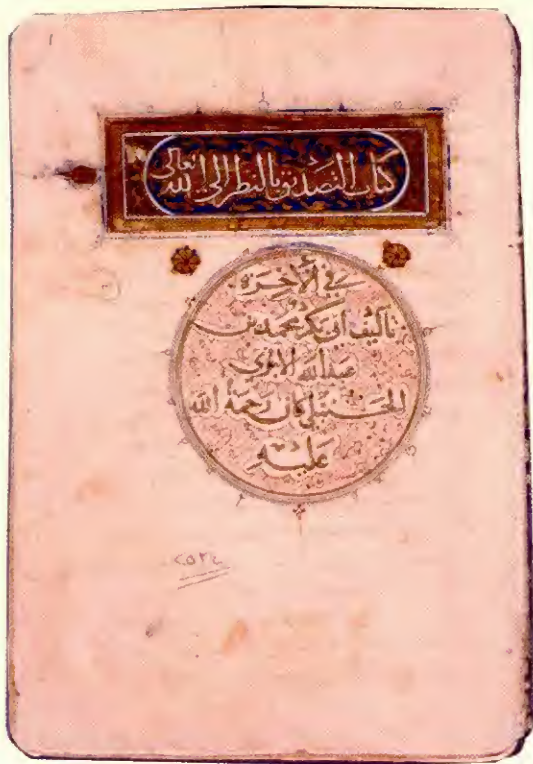 كتاب التصديق بالنظر إلى الله تعالى
في الآخرة
تأليف أبي بكر محمد بن
عبد الله الاجري
الحنبلي كان رحمة الله
عليه
٢٥٣٤